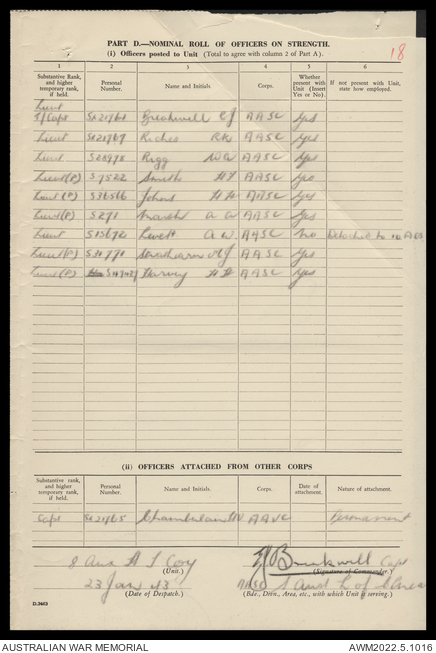 PART D.—NOMINAL ROLL OF OFFICERS ON STRENGTH.
(i) Officers posted to Unit (Total to agree with column 2 of Part A).
18
1 2 3 4 5 6
Substantive Rank, and higher temporary rank, if held. Personal Number. Name and Initials. Corps. Whether present with Unit (Insert Yes or No). If not present with Unit, state how employed.
Lieut
T/Capt Breakwell EJ AASC Yes
Lieut Riches RK AASC Yes
Lieut Rigg AASC Yes
Lieut(P) S7522 Smith AASC Yes
Lieut(P) S36566 Johns HH AASC Yes
Lieut(P) S271 Marsh AASC Yes
Lieut S15692 Levett AW AASC No Detached to
Lieut(P) AASC Yes
Lieut(P) Harvey AASC Yes
(ii) OFFICERS ATTACHED FROM OTHER CORPS
Substantive rank, and higher temporary rank, if held. Personal Number. Name and Initials. Corps. Date of attachment. Nature of attachment.
Capt Chamberlain Permanent
8 Aus A T Coy
(Unit.)
Breakwell Capt
(Signature of Commander.)
23 Jan 43
(Date of Despatch.)
S Aust L of C Area
(Bde., Divn., Area, etc., with which Unit is serving.)
D.2662
AUSTRALIAN WAR MEMORIAL
AWM2022.5.1016